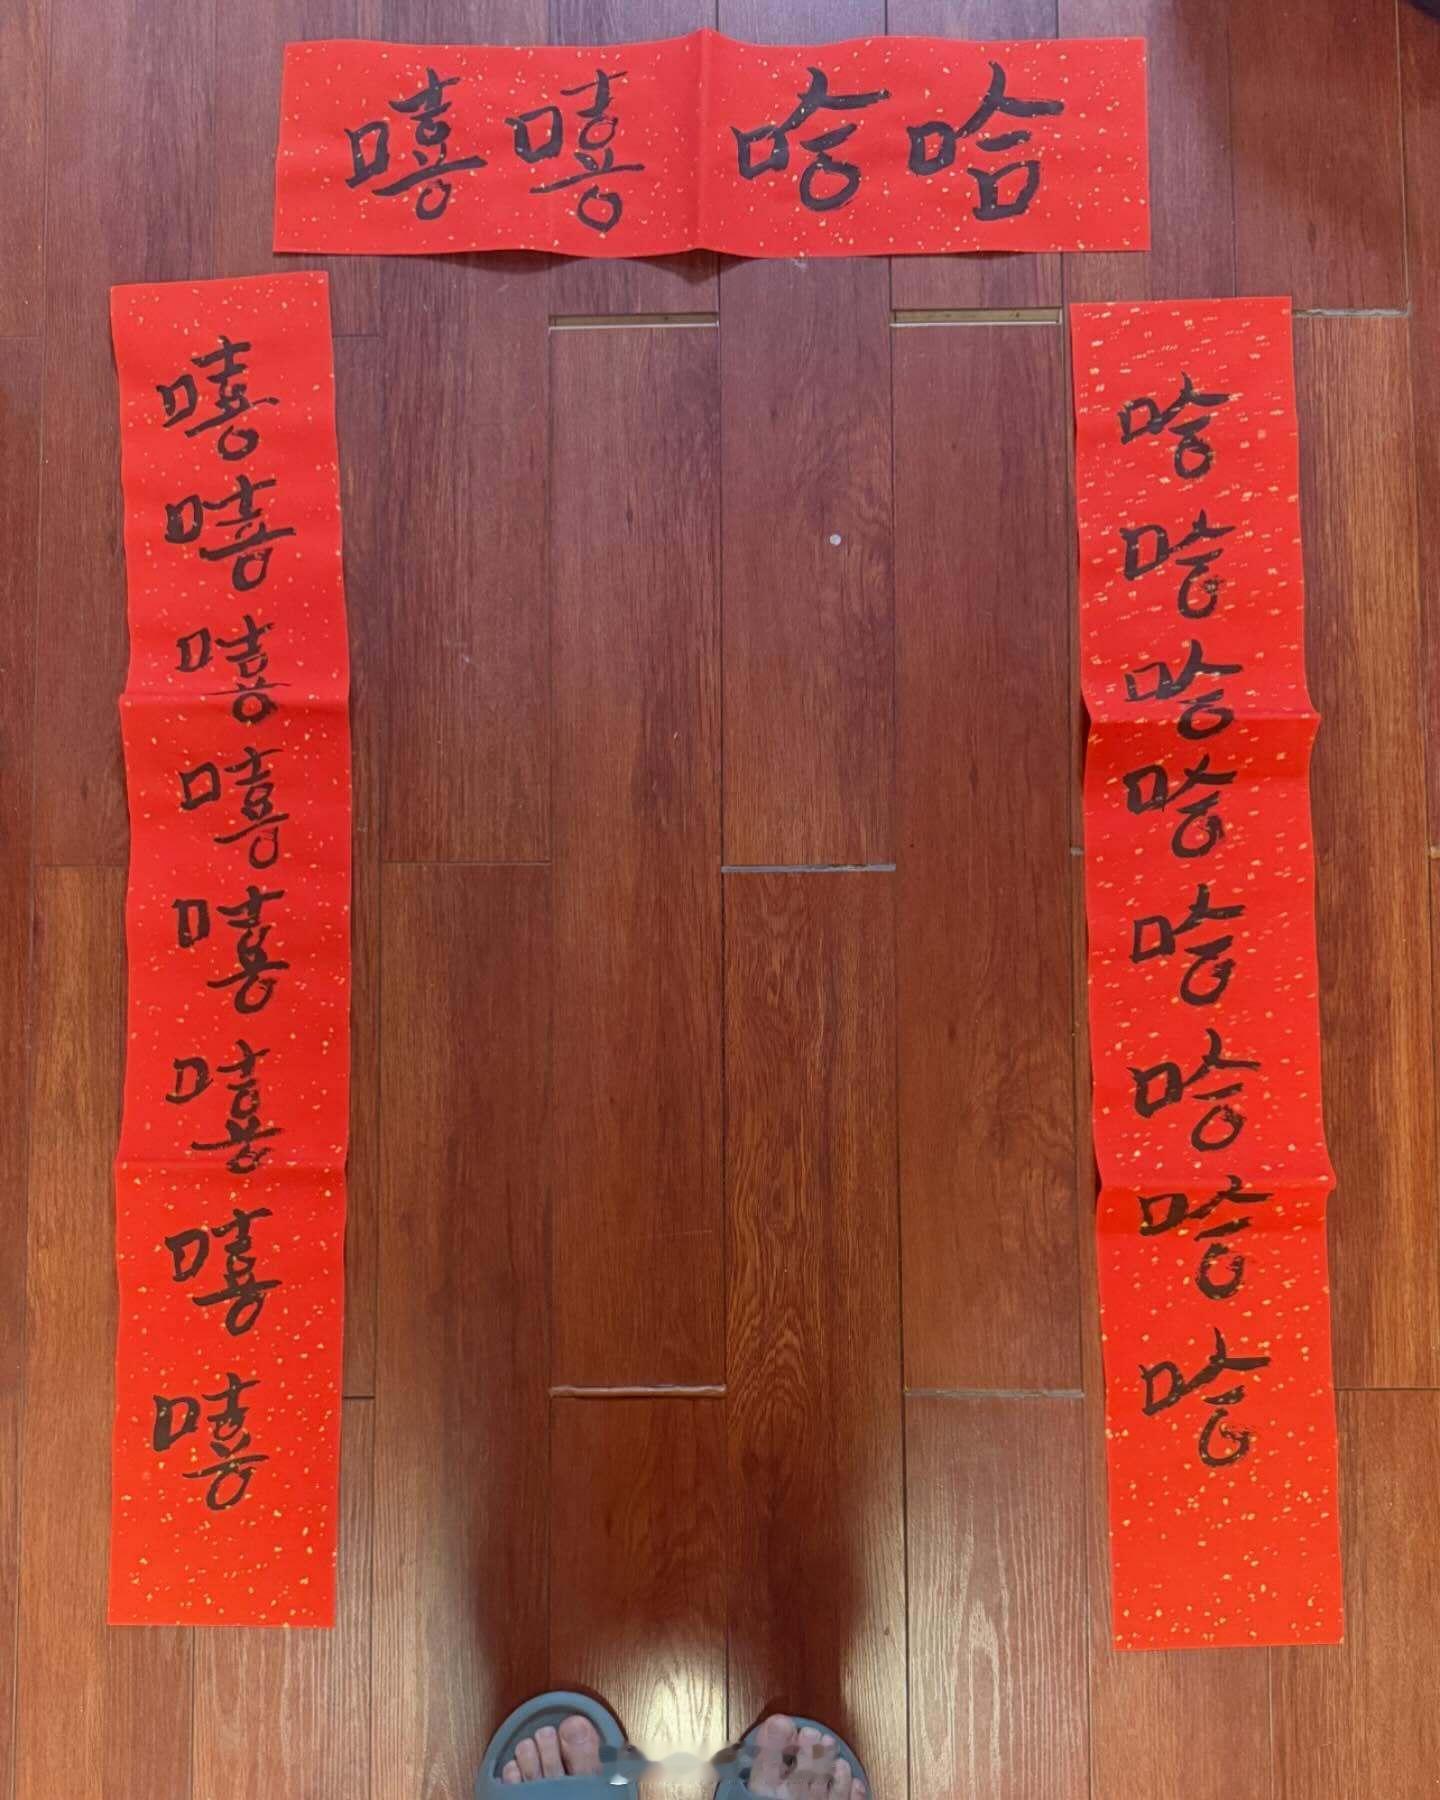 嘻嘻哈哈
嘻嘻嘻嘻嘻嘻嘻嘻
哈哈哈哈哈哈哈哈